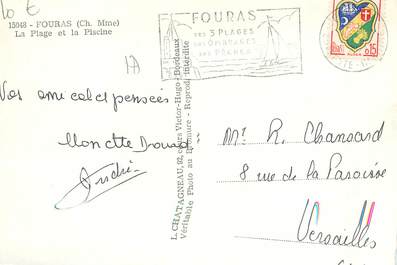 10 €
15048 - FOURAS (Ch. Mme)
La Plage et la Piscine
FOURAS
SES 3 PLAGES
SES OMBRAGES
SES PÊCHES
0,15
Vos amicales pensées
Monette
André
L. CHATAGNEAU, 92, cours Victor-Hugo - Bordeaux
Véritable Photo au Bromure - Reprod. interdite
Mr R. Chansard
8 rue de la Paroisse
Versailles